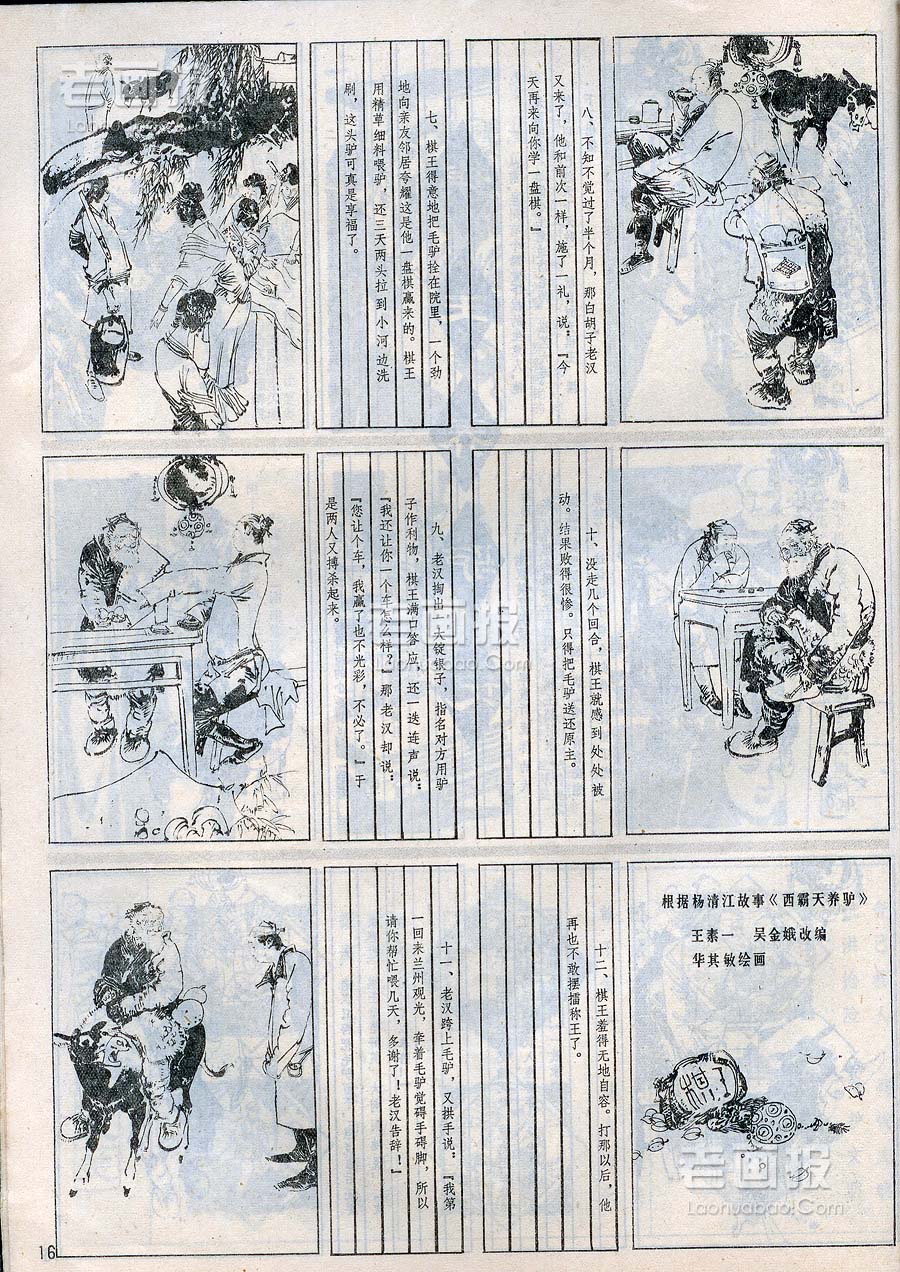 七、棋王得意地把毛驴拴在院里，一个劲
地向亲友邻居夸耀这是他一盘棋赢来的。棋王
用精草细料喂驴，还三天两头拉到小河边洗
刷，这头驴可真是享福了。
八、不知不觉过了半个月，那白胡子老汉
又来了，他和前次一样，施了一礼，说：『今
天再来向你学一盘棋。』
九、老汉掏出一大锭银子，指名对方用驴
子作利物，棋王满口答应，还一迭连声说：
『我还让你一个车怎么样？』那老汉却说：
『您让个车，我赢了也不光彩，不必了。』于
是两人又搏杀起来。
十、没走几个回合，棋王就感到处处被
动。结果败得很惨。只得把毛驴送还原主。
十一、老汉跨上毛驴，又拱手说：『我第
一回来兰州观光，牵着毛驴觉碍手碍脚，所以
请你帮忙喂几天，多谢了！老汉告辞！』
十二、棋王羞得无地自容。打那以后，他
再也不敢摆擂称王了。
根据杨清江故事《西霸天养驴》
王素一　吴金娥改编
华其敏绘画
棋王
16
老画报
Laohuabao.Com
老画报
Laohuabao.Com
老画报
Laohuabao.Com
老画报
Laohuabao.Com